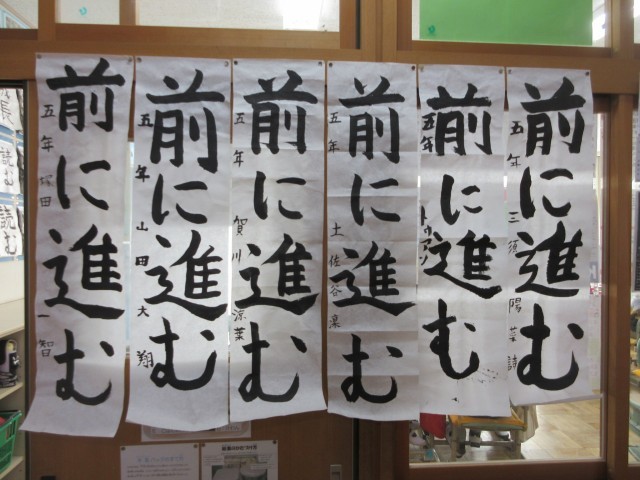 前に進む
五年 塚田 一智
前に進む
五年 山田 大翔
前に進む
五年 賀川 涼菜
前に進む
五年 土佐谷 凜
前に進む
五年 トゥアン
前に進む
五年 三須 陽
読む
読む